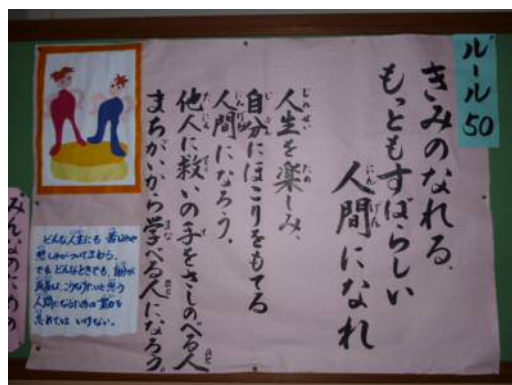 ルール50
きみのなれる、
もっともすばらしい
人間になれ
人生を楽しみ、
自分にほこりをもてる
人間になろう。
他人に救いの手をさしのべる人
まちがいから学べる人になろう。
どんな人生にも苦しみや
悲しみがついてまわる。
でもどんなときでも、自分が
こうなりたいと思う
人間になるための努力を
忘れてはいけない。
みんなのための